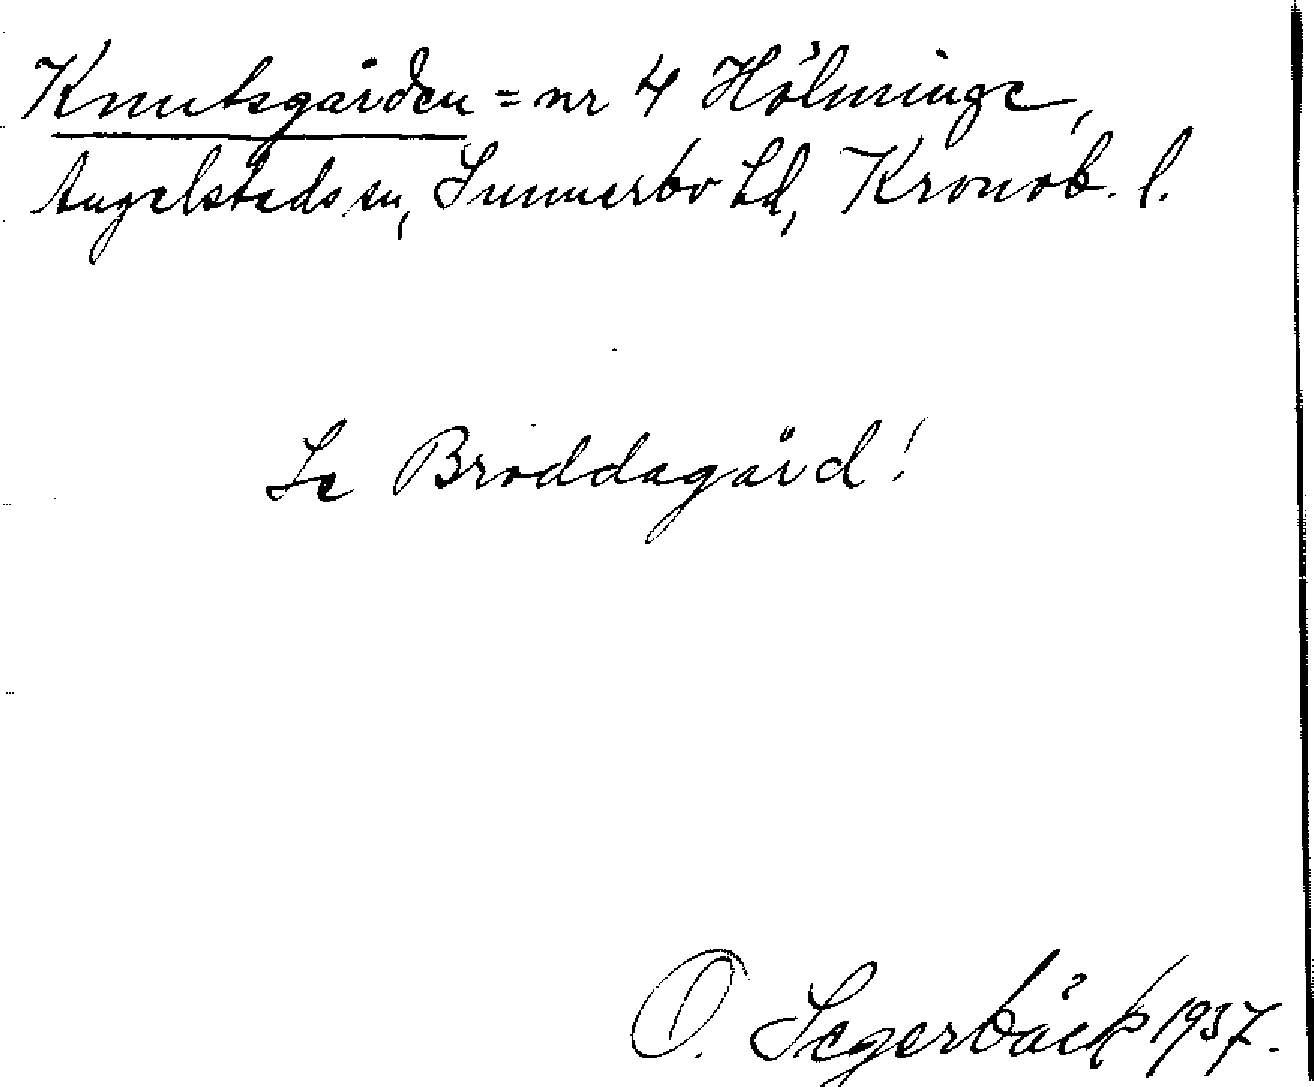 Knutsgården = nr 4 Hölminge,
Angelstads sn, Sunnerbo hd, Kronob. l.
Se Broddagård!
O. Segerbäck 1937.